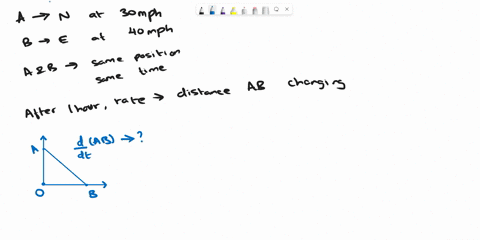 A → N at 30mph
B → E at 40mph
A&B → same position
same time
After 1 hour, rate → distance AB changing
d/dt (AB) → ?
A
O
B